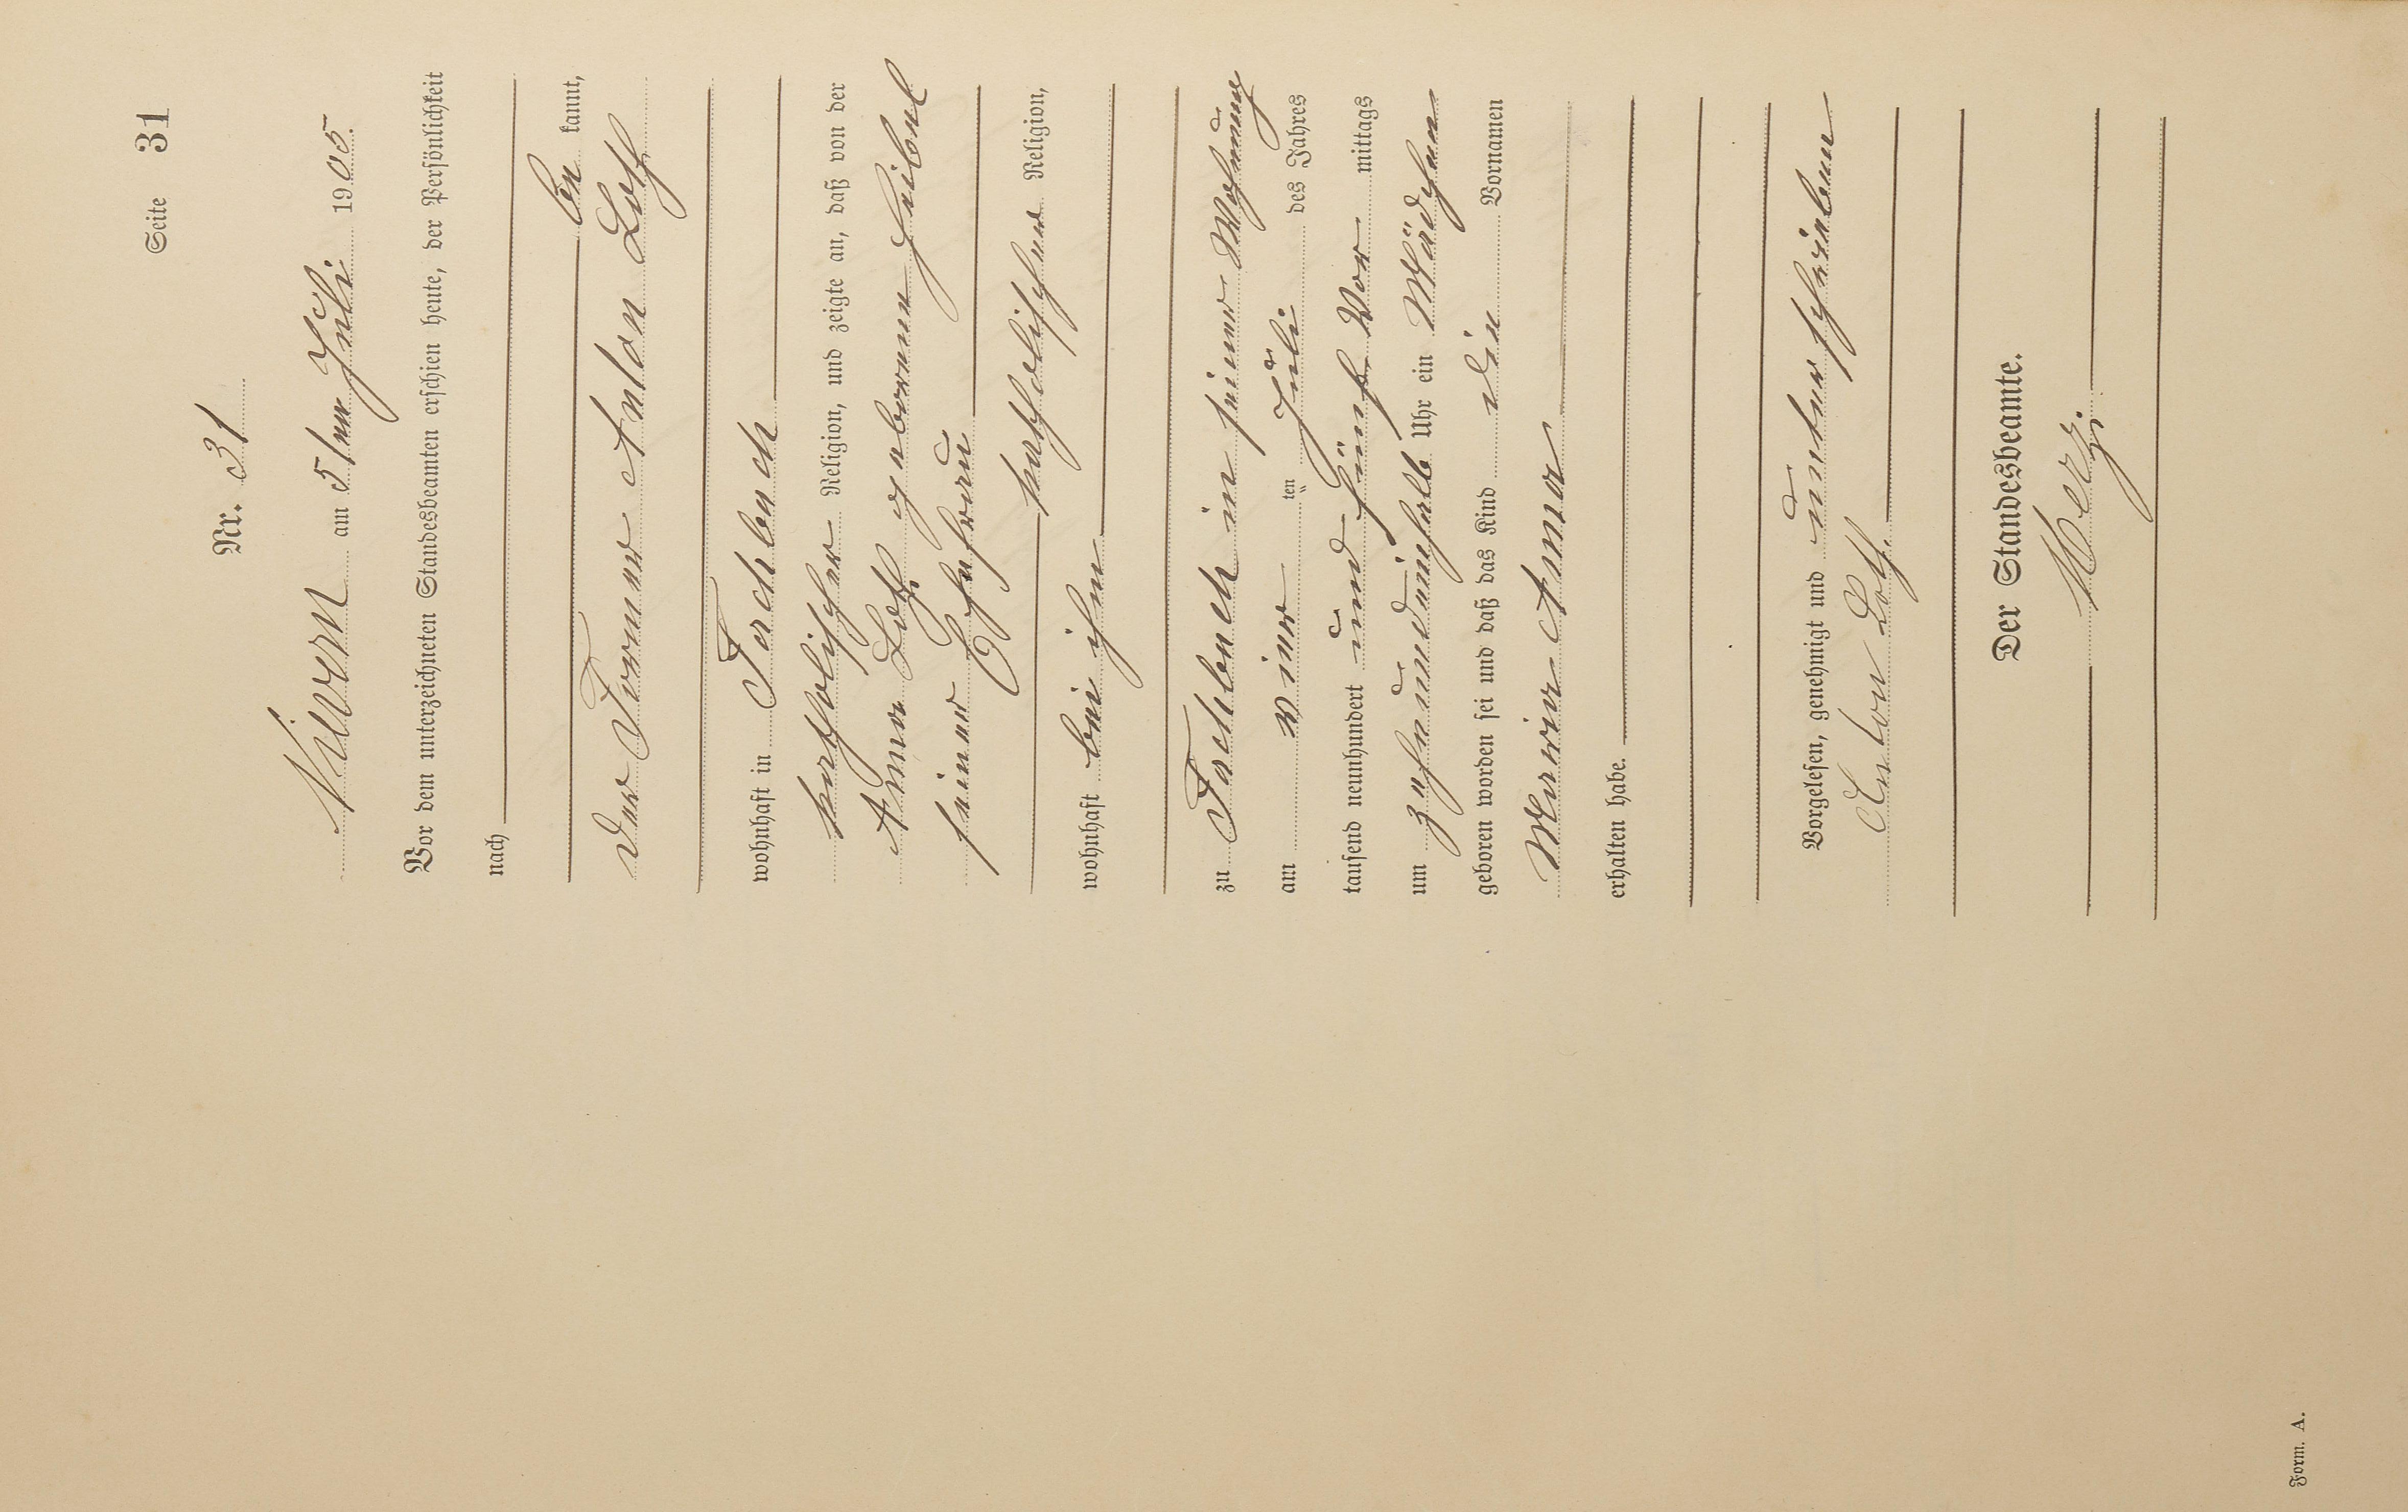 Seite 31
Nr. 31
Nievern am 5ten Juli 1905.
Vor dem unterzeichneten Standesbeamten erschien heute, der Persönlichkeit
nach
be kannt,
der Former Anton Loth
wohnhaft in Fachbach
katholischer Religion, und zeigte an, daß von der
Anna Loth geborenen Heibel
seiner Ehefrau
katholischer Religion,
wohnhaft bei ihm
zu Fachbach in seiner Wohnung
am vier ten Juli des Jahres
tausend neunhundert und fünf Vor mittags
um zehneinhalb Uhr ein Mädchen
geboren worden sei und daß das Kind die Vornamen
Maria Anna
erhalten habe.
Vorgelesen, genehmigt und unterschrieben
Anton Loth.
Der Standesbeamte.
Merz.
Form. A.